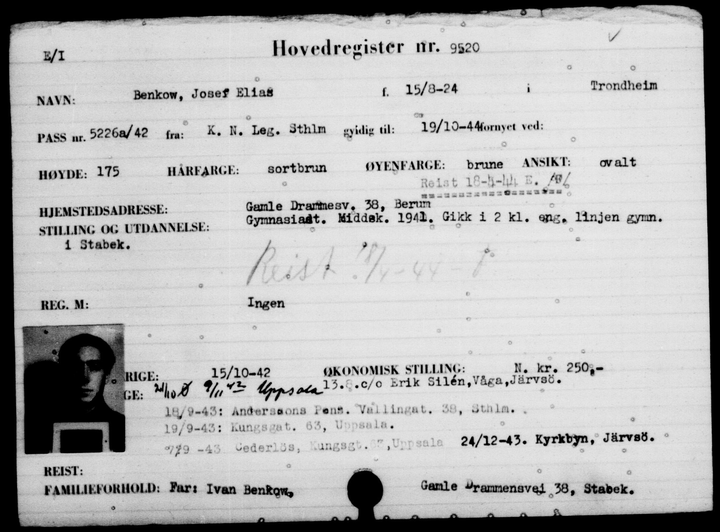 E/I
Hovedregister nr. 9520
NAVN: Benkow, Josef Elias f. 15/8-24 i Trondheim
PASS nr. 5226a/42 fra: K. N. Leg. Sthlm gyldig til: 19/10-44 fornyet ved:
HØYDE: 175 HÅRFARGE: sortbrun ØYENFARGE: brune ANSIKT: ovalt
Reist 18-4-44 E.
HJEMSTEDSADRESSE: Gamle Drammesv. 38, Berum
STILLING OG UTDANNELSE: Gymnasiast. Middsk. 1941. Gikk i 2 kl. eng. linjen gymn.
i Stabek.
Reist 18/4-44
REG. M: Ingen
RIGE: 15/10-42 ØKONOMISK STILLING: N. kr. 250,-
GE: 9/11 42 Uppsala 13.8.c/o Erik Silén, Våga, Järvsö.
18/9-43: Anderssons Pens. Vallingat. 38, Sthlm.
19/9-43: Kungsgat. 63, Uppsala.
-43 Cederlös, Kungsgt. 67, Uppsala 24/12-43. Kyrkbyn, Järvsö.
REIST:
FAMILIEFORHOLD: Far: Ivan Benkow, Gamle Drammensvei 38, Stabek.